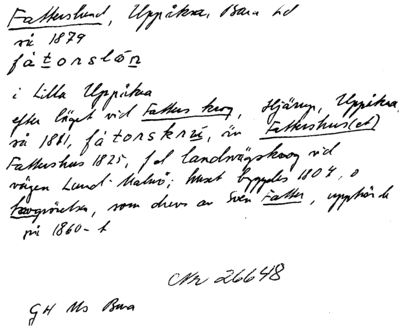 Fatterslund, Uppåkra, Bara hd
så 1879
fátorslón
i Lilla Uppåkra
efter läget vid Fatters krog, Hjärup, Uppåkra,
så 1861, fátorskrú, än Fattershus(et)
Fattershus 1825, f d landsvägskrog vid
vägen Lund-Malmö; huset byggdes 1804, o
krogrörelsen, som drevs av Sven Fatter, upphörde
på 1860-t
CNr 26648
GH Ms Bara